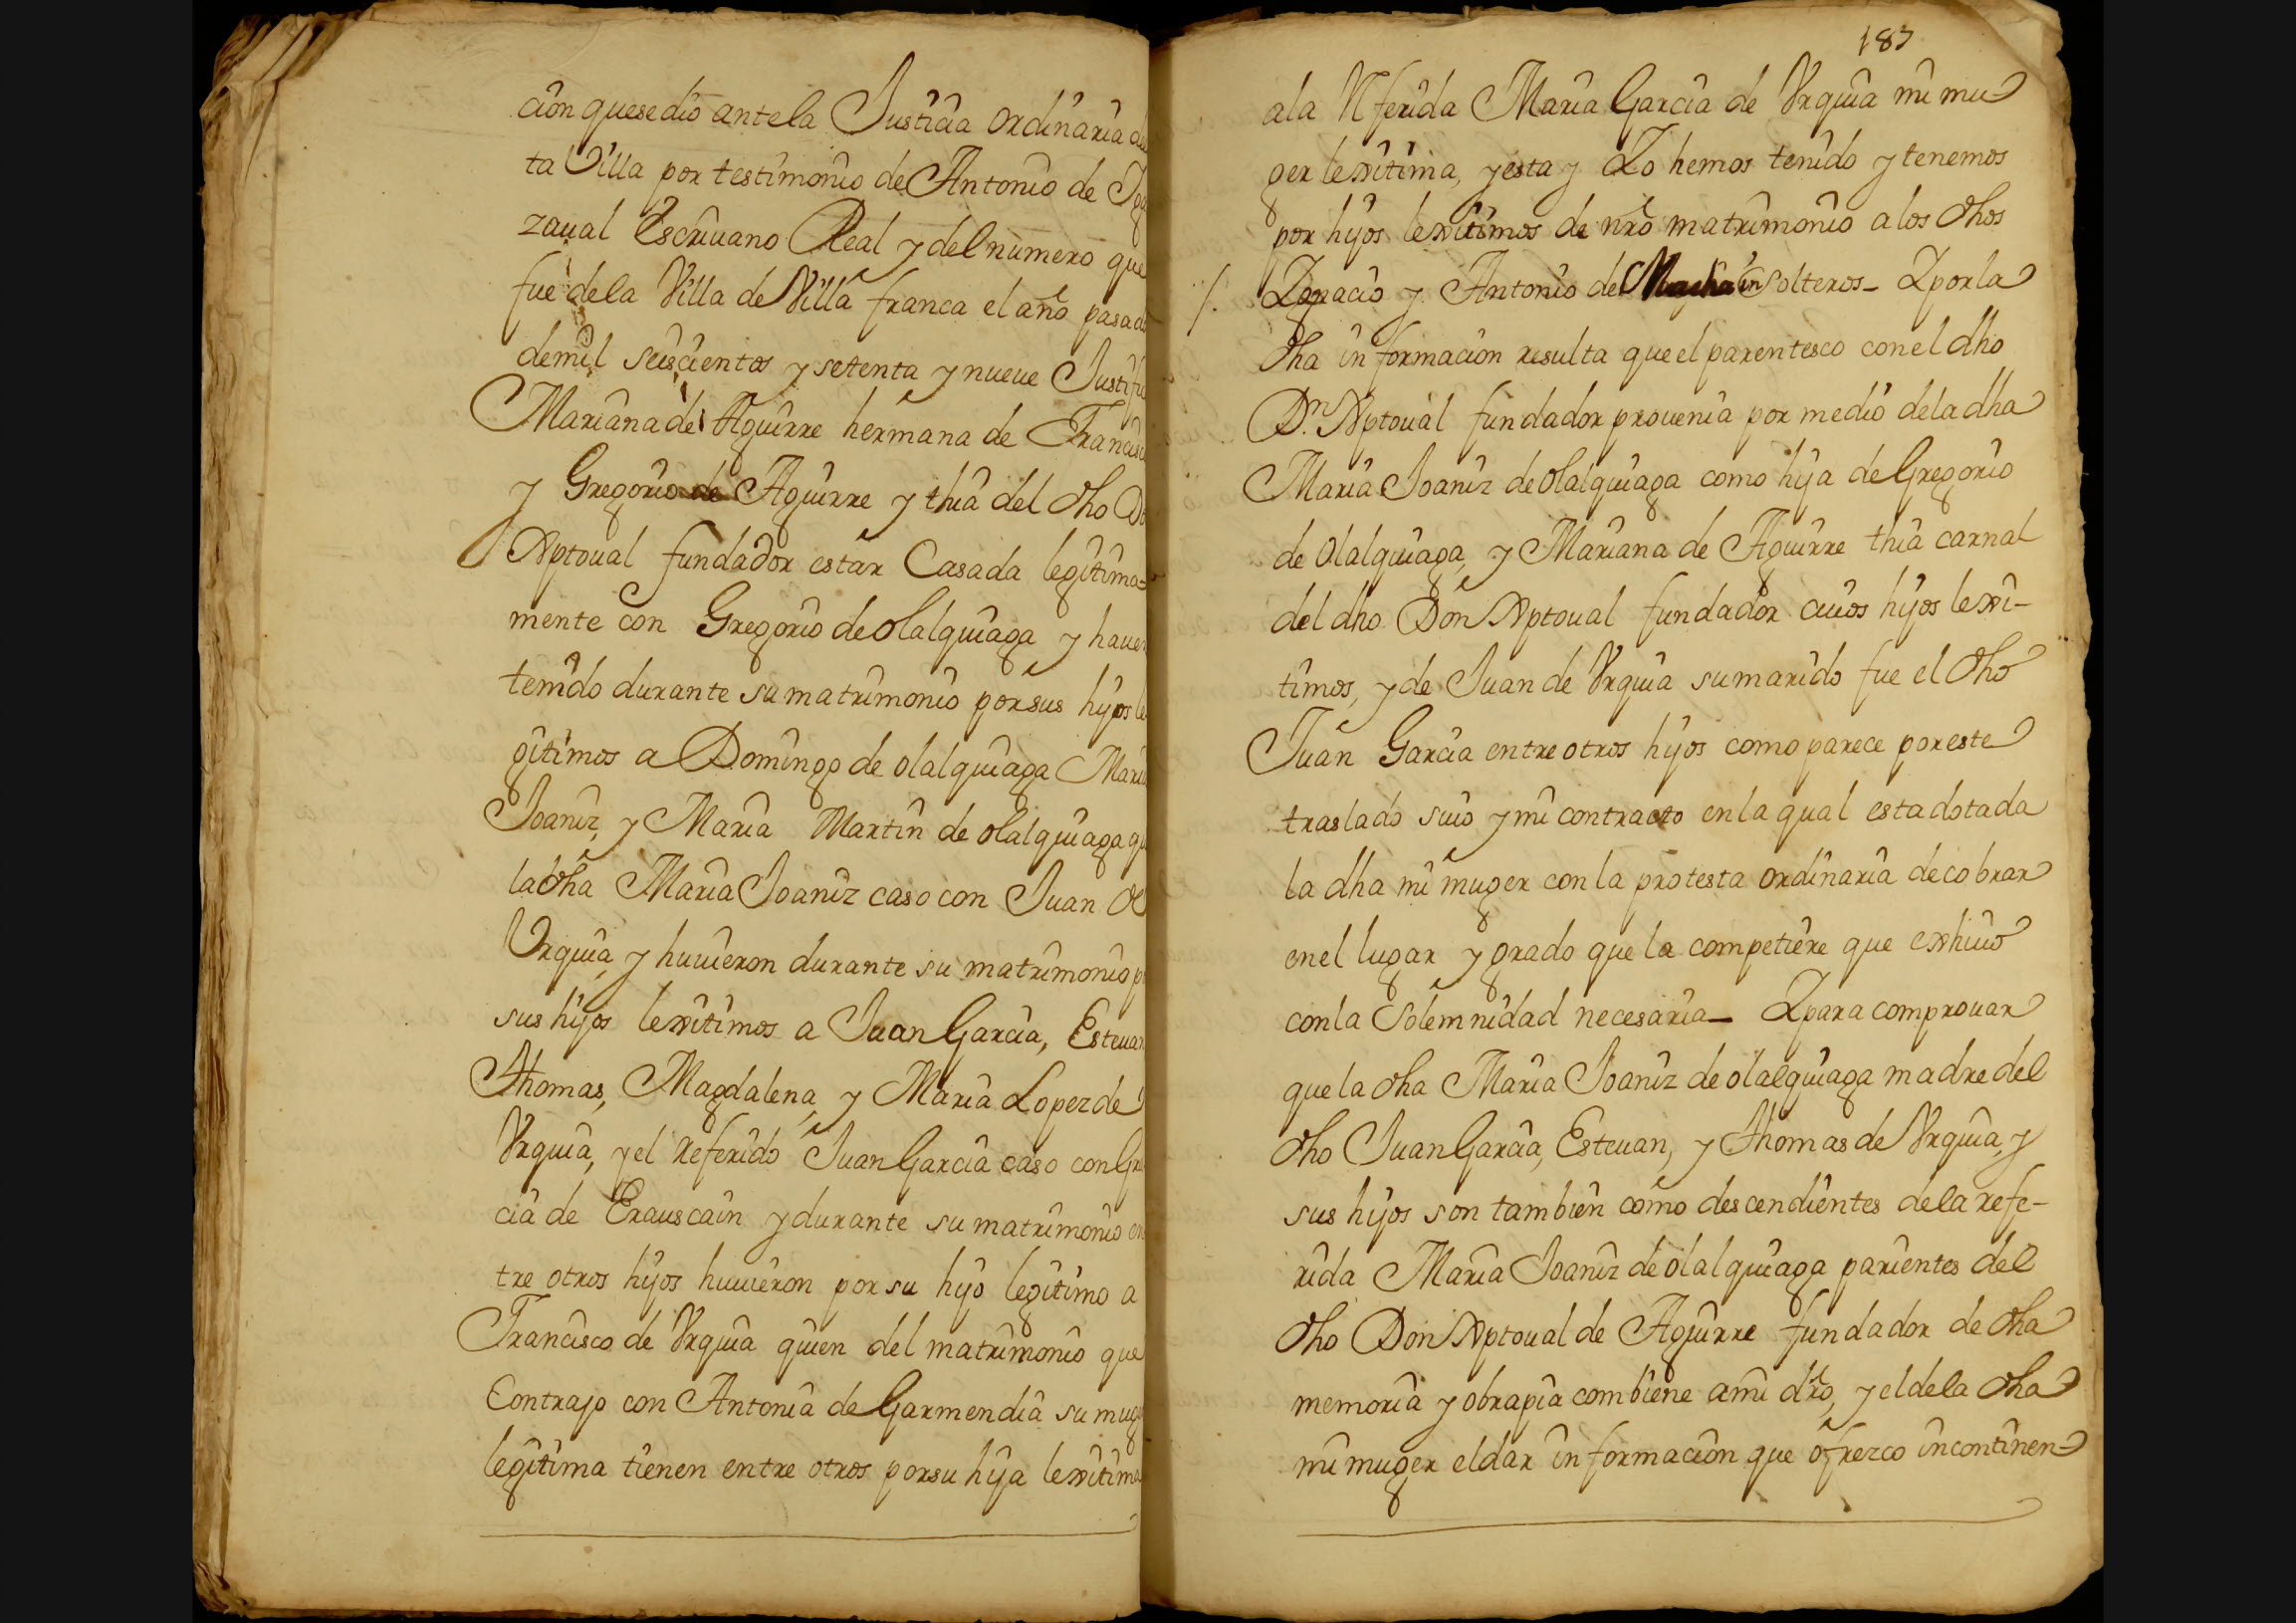 cion quesedio antela Justicia ordinaria
ta Villa por testimonio de Antonio de
zaual Escriuano Real y del numero que
fue dela Villa de Villa franca el año pasado
demil seiscientos y setenta y nueue
Mariana de Aguirre hermana de
y Gregorio de Aguirre y thia del dho
Xptoual fundador estar Casada legitima-
mente con Gregorio de olalquiaga y hauer
tenido durante su matrimonio por sus hijos le
gitimos a Domingo de olalquiaga Maria
Joaniz, y Maria Martin de olalquiaga
la dha Maria Joaniz caso con Juan de
Vrquia, y huuieron durante su matrimonio
sus hijos lexitimos a Juan Garcia, Esteuan
Thomas, Magdalena, y Maria Lopez de
Vrquia, y el Referido Juan Garcia caso con
cia de Erauscain y durante su matrimonio en
tre otros hijos huuieron por su hijo legitimo a
Francisco de Vrquia quien del matrimonio que
Contrajo con Antonia de Garmendia su
legitima tienen entre otros por su hija lexitima
187
ala Referida Maria Garcia de Vrquia mi mu-
ger lexitima, y esta y Yo hemos tenido y tenemos
por hijos lexitimos de nro matrimonio a los dhos
Ygnacio y Antonio de solteros - Y por la
dha informacion resulta que el parentesco con el dho
Dn. Xptoual fundador prouenia por medio dela dha
Maria Joaniz de olalquiaga como hija de Gregorio
de olalquiaga, y Mariana de Aguirre thia carnal
del dho Don Xptoual fundador cuios hijos lexi-
timos, y de Juan de Vrquia su marido fue el dho
Juan Garcia entre otros hijos como parece por este
traslado suio y mi contracto en la qual esta dotada
la dha mi muger con la protesta ordinaria de cobrar
en el lugar y grado que la competiere que exhiuo
con la Solemnidad necesaria - Y para comprouar
que la dha Maria Joaniz de olalquiaga madre del
dho Juan Garcia, Esteuan, y Thomas de Vrquia, y
sus hijos son tambien como descendientes dela refe-
rida Maria Joaniz de olalquiaga parientes del
dho Don Xptoual de Aguirre fundador de dha
memoria y obrapia combiene a mi dro, y el dela dha
mi muger el dar informacion que ofrezco incontinen-